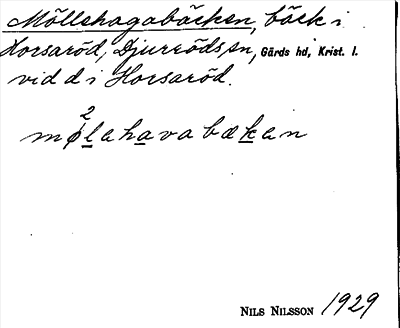 Möllshagabäcken, bäck i
Horsaröd, Djurröds sn, Gärds hd, Krist. l.
vid d i Horsaröd.
2
mølahavabækan
NILS NILSSON 1929